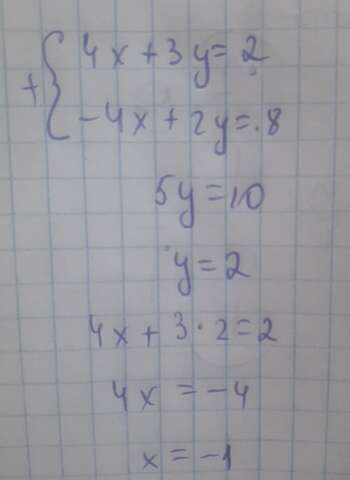 4x + 3y = 2
+ { -4x + 2y = 8
5y = 10
y = 2
4x + 3 · 2 = 2
4x = -4
x = -1